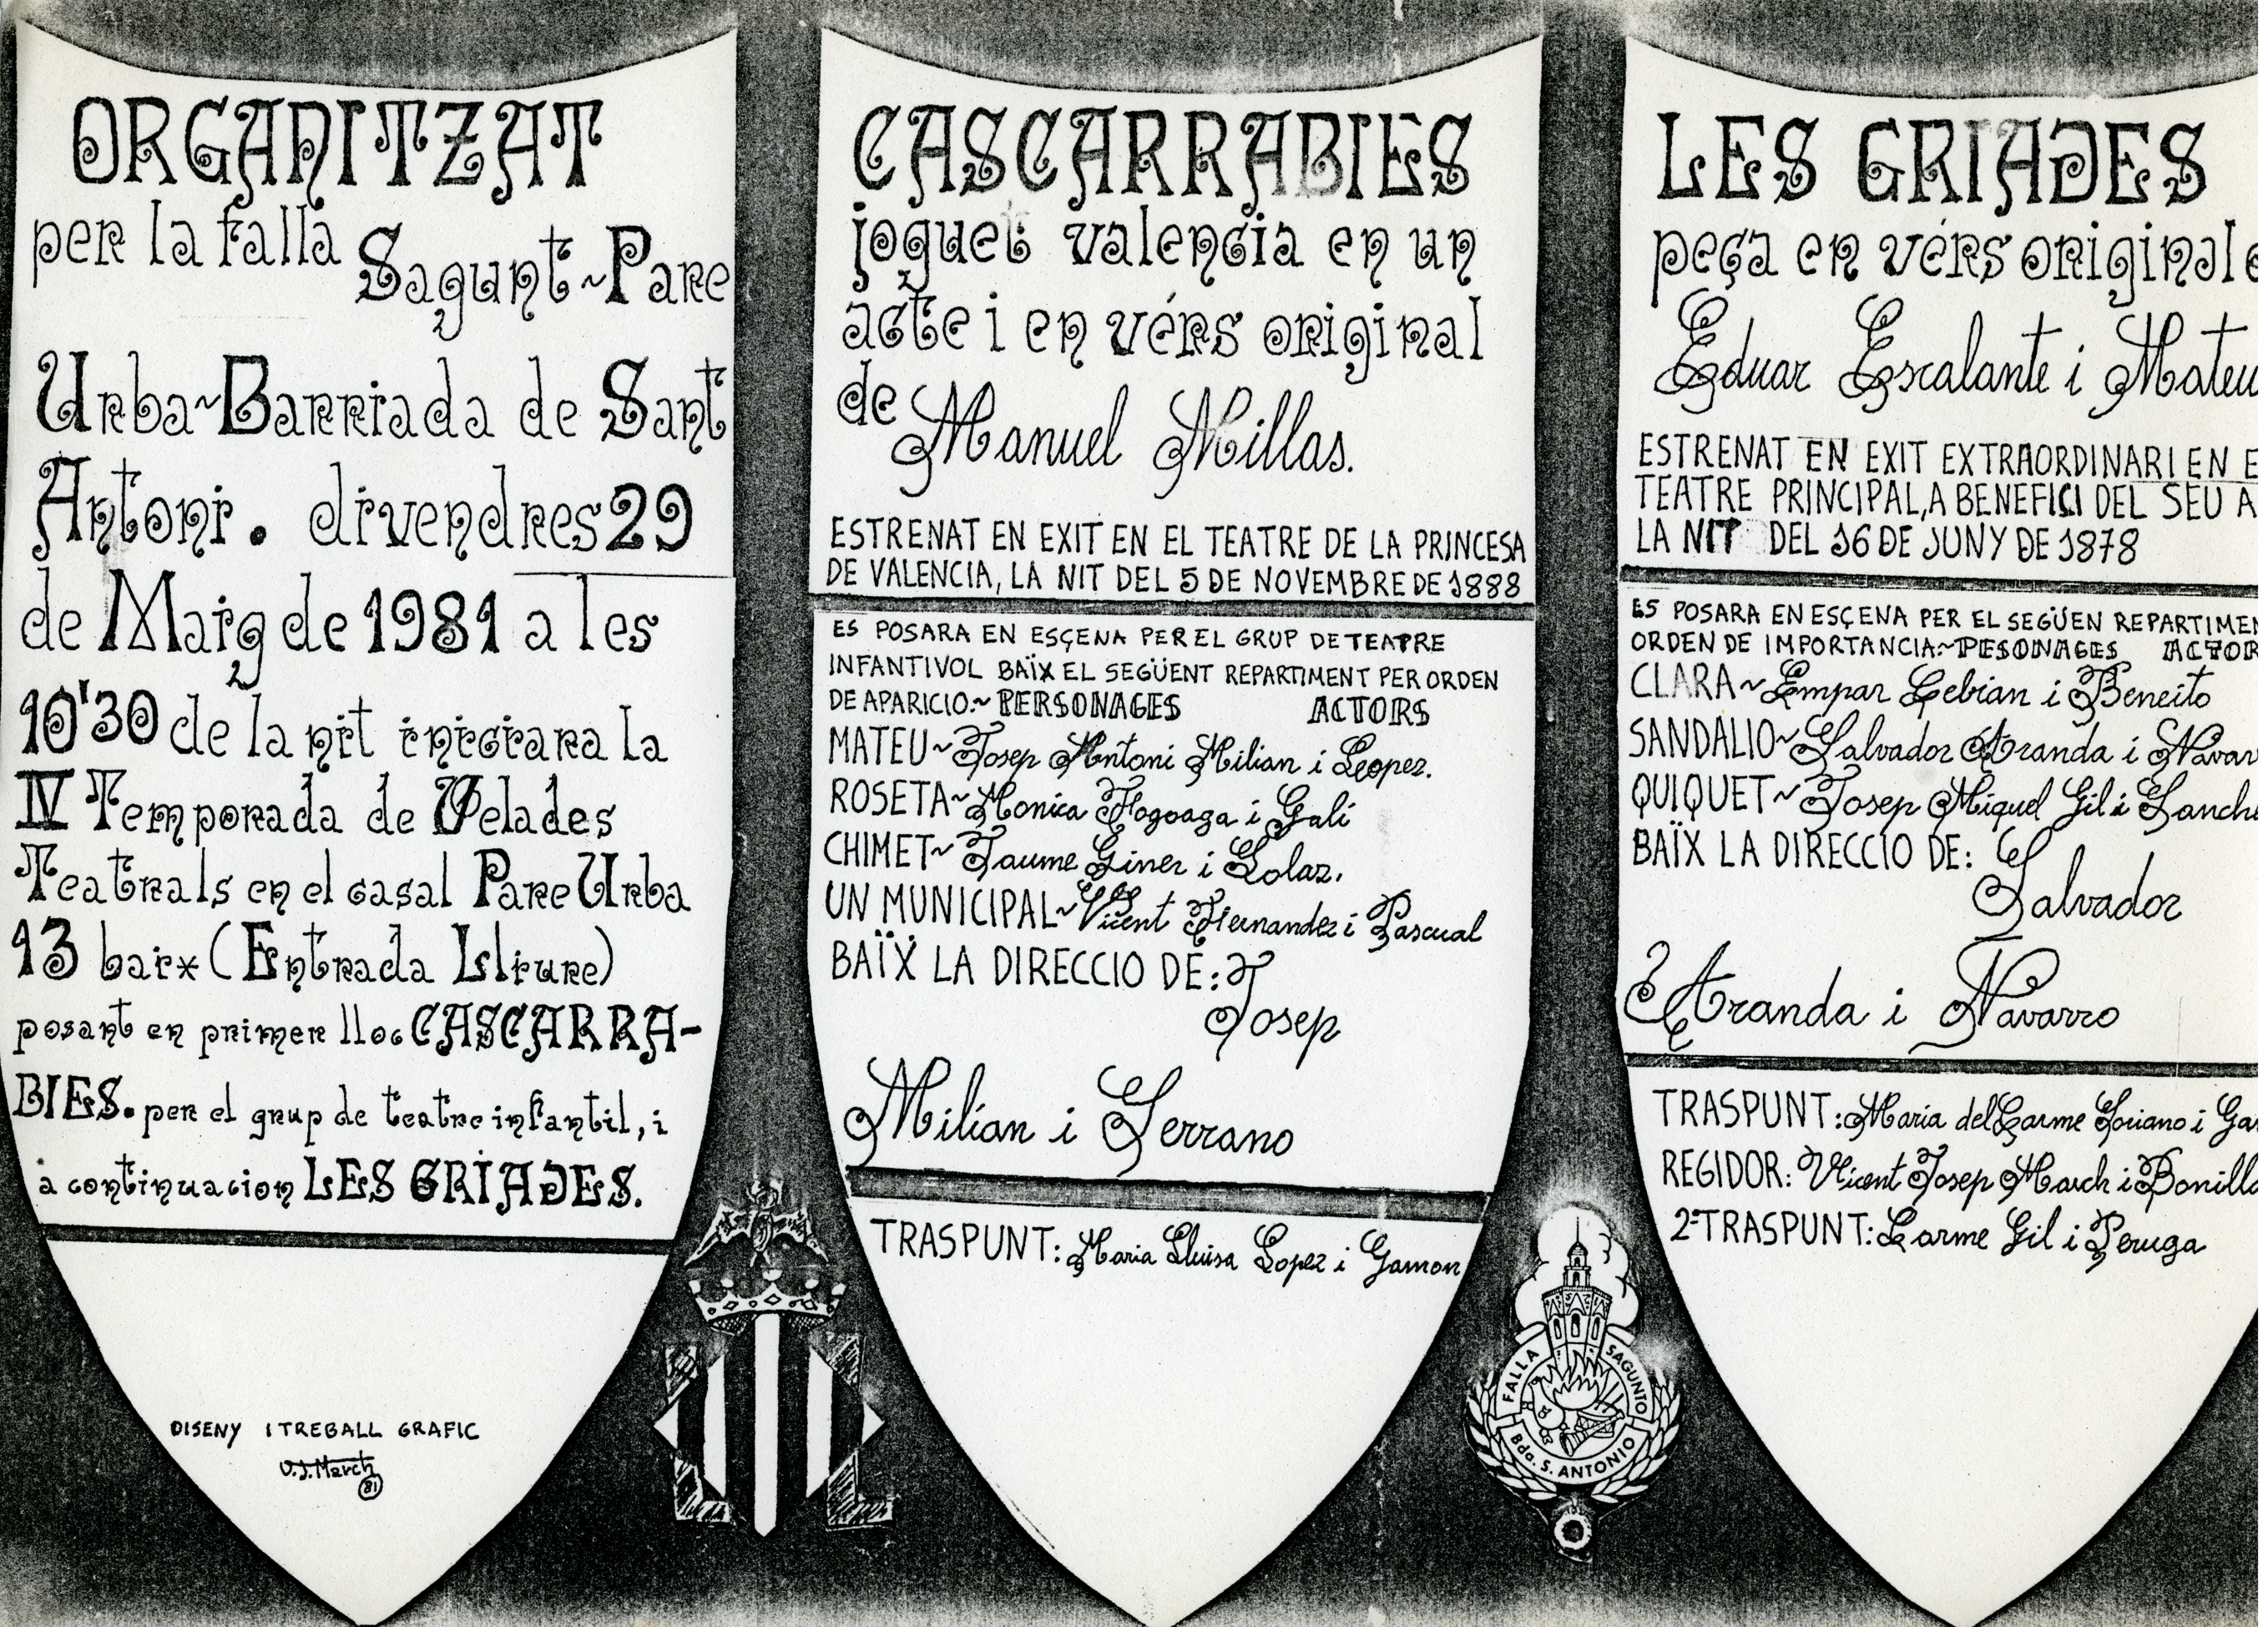 ORGANITZAT
per la falla Sagunt~Pare
Urba~Barriada de Sant
Antoni. divendres 29
de Maig de 1981 a les
10'30 de la nit iniciara la
IV Temporada de Velades
Teatrals en el casal Pare Urba
13 baix (Entrada Lliure)
posant en primer lloc CASCARRA-
BIES. per el grup de teatre infantil, i
a continuacion LES GRIADES.
DISENY I TREBALL GRAFIC
V.J. March
81
CASCARRABIES
joguet valencia en un
acte i en vérs original
de Manuel Millas.
ESTRENAT EN EXIT EN EL TEATRE DE LA PRINCESA
DE VALENCIA, LA NIT DEL 5 DE NOVEMBRE DE 1888
ES POSARA EN ESÇENA PER EL GRUP DE TEATRE
INFANTIVOL BAÏX EL SEGÜENT REPARTIMENT PER ORDEN
DE APARICIO~ PERSONAGES ACTORS
MATEU~Josep Antoni Milian i Lopez.
ROSETA~Monica Fogoaga i Gali
CHIMET~Jaume Giner i Lolaz.
UN MUNICIPAL~Vicent Fernandez i Pascual
BAÏX LA DIRECCIO DE: Josep
Milian i Serrano
TRASPUNT: Maria Lluisa Lopez i Gamon
FALLA SAGUNTO
Bda. S. ANTONIO
LES GRIADES
peça en vérs original
Eduar Escalante i Mateu
ESTRENAT EN EXIT EXTRAORDINARI EN E
TEATRE PRINCIPAL, A BENEFICI DEL SEU A
LA NIT DEL 16 DE JUNY DE 1878
ES POSARA EN ESÇENA PER EL SEGÜEN REPARTIMEN
ORDEN DE IMPORTANCIA~PESONAGES ACTOR
CLARA~Empar Cebrian i Beneito
SANDALIO~Salvador Aranda i Navar
QUIQUET~Josep Miquel Gil i Sanche
BAÏX LA DIRECCIO DE: Salvador
Aranda i Navarro
TRASPUNT: Maria del Carme Soriano i Ga
REGIDOR: Vicent Josep March i Bonilla
2ªTRASPUNT: Carme Gil i Peruga